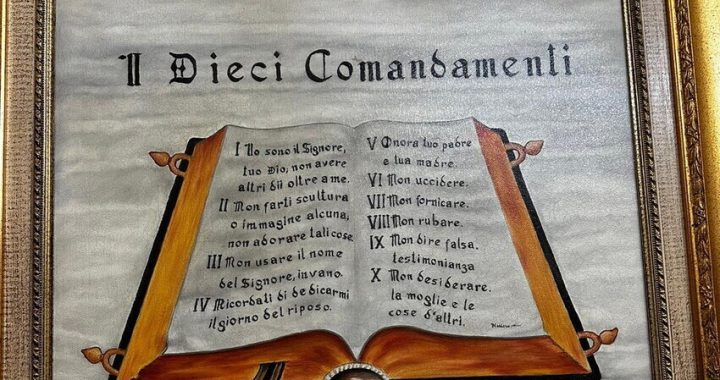 I Dieci Comandamenti
I Io sono il Signore,
tuo Dio, non avere
altri dii oltre a me.
II Non farti scultura
o immagine alcuna,
non adorare tali cose
III Non usare il nome
del Signore, invano.
IV Ricordati di dedicarmi
il giorno del riposo.
V Onora tuo padre
e tua madre.
VI Non uccidere.
VII Non fornicare.
VIII Non rubare.
IX Non dire falsa.
testimonianza
X Non desiderare.
la moglie e le
cose d'altri.